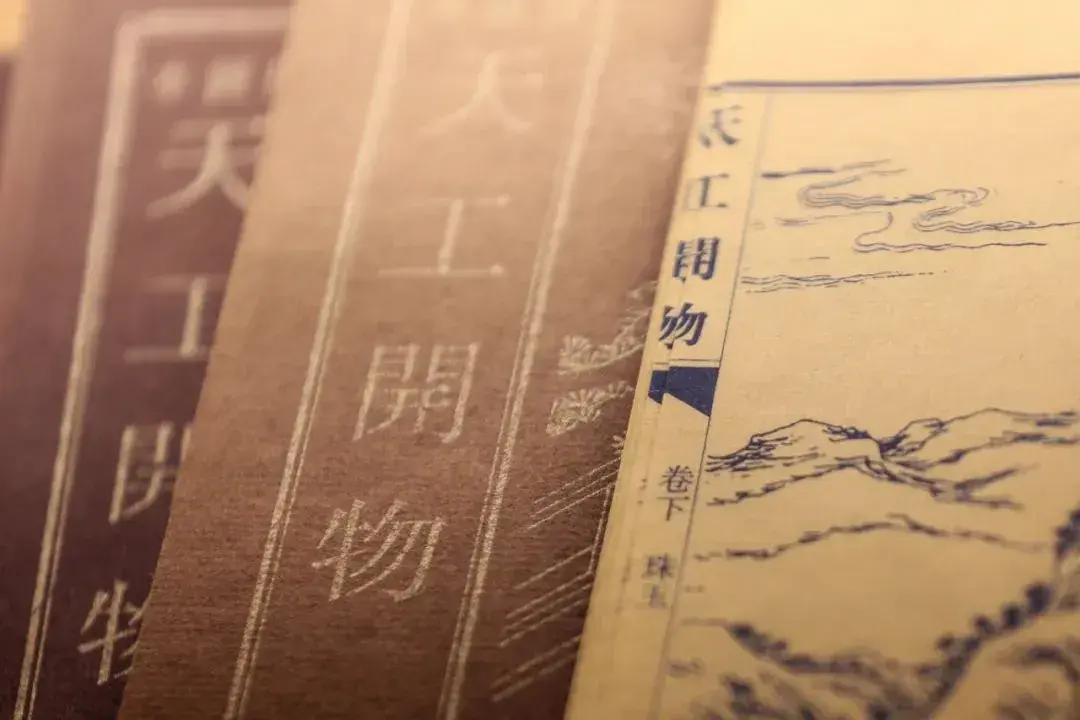 天工開物
天工開物
天工開物
卷下 珠玉